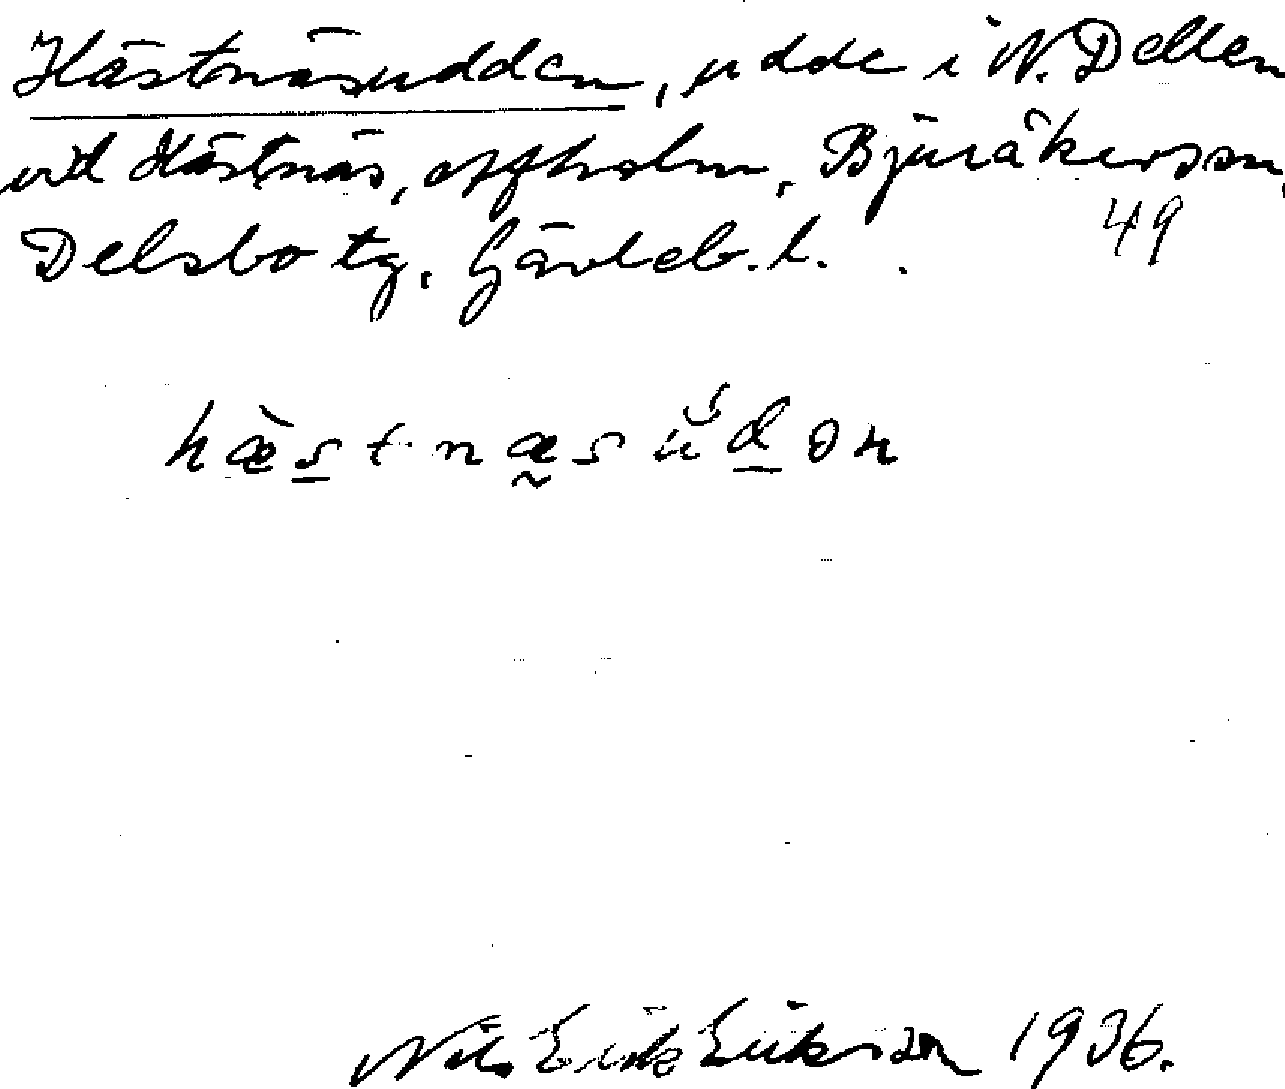 Hästnäsudden, udde i N. Dellen
vid Hästnäs, Bjuråkers sn,
49
Delsbo tg, Gävleb. l.
hæ̀s̲tnæ̰sŭ́d̲ən
Nils Erik Eriksson 1936.